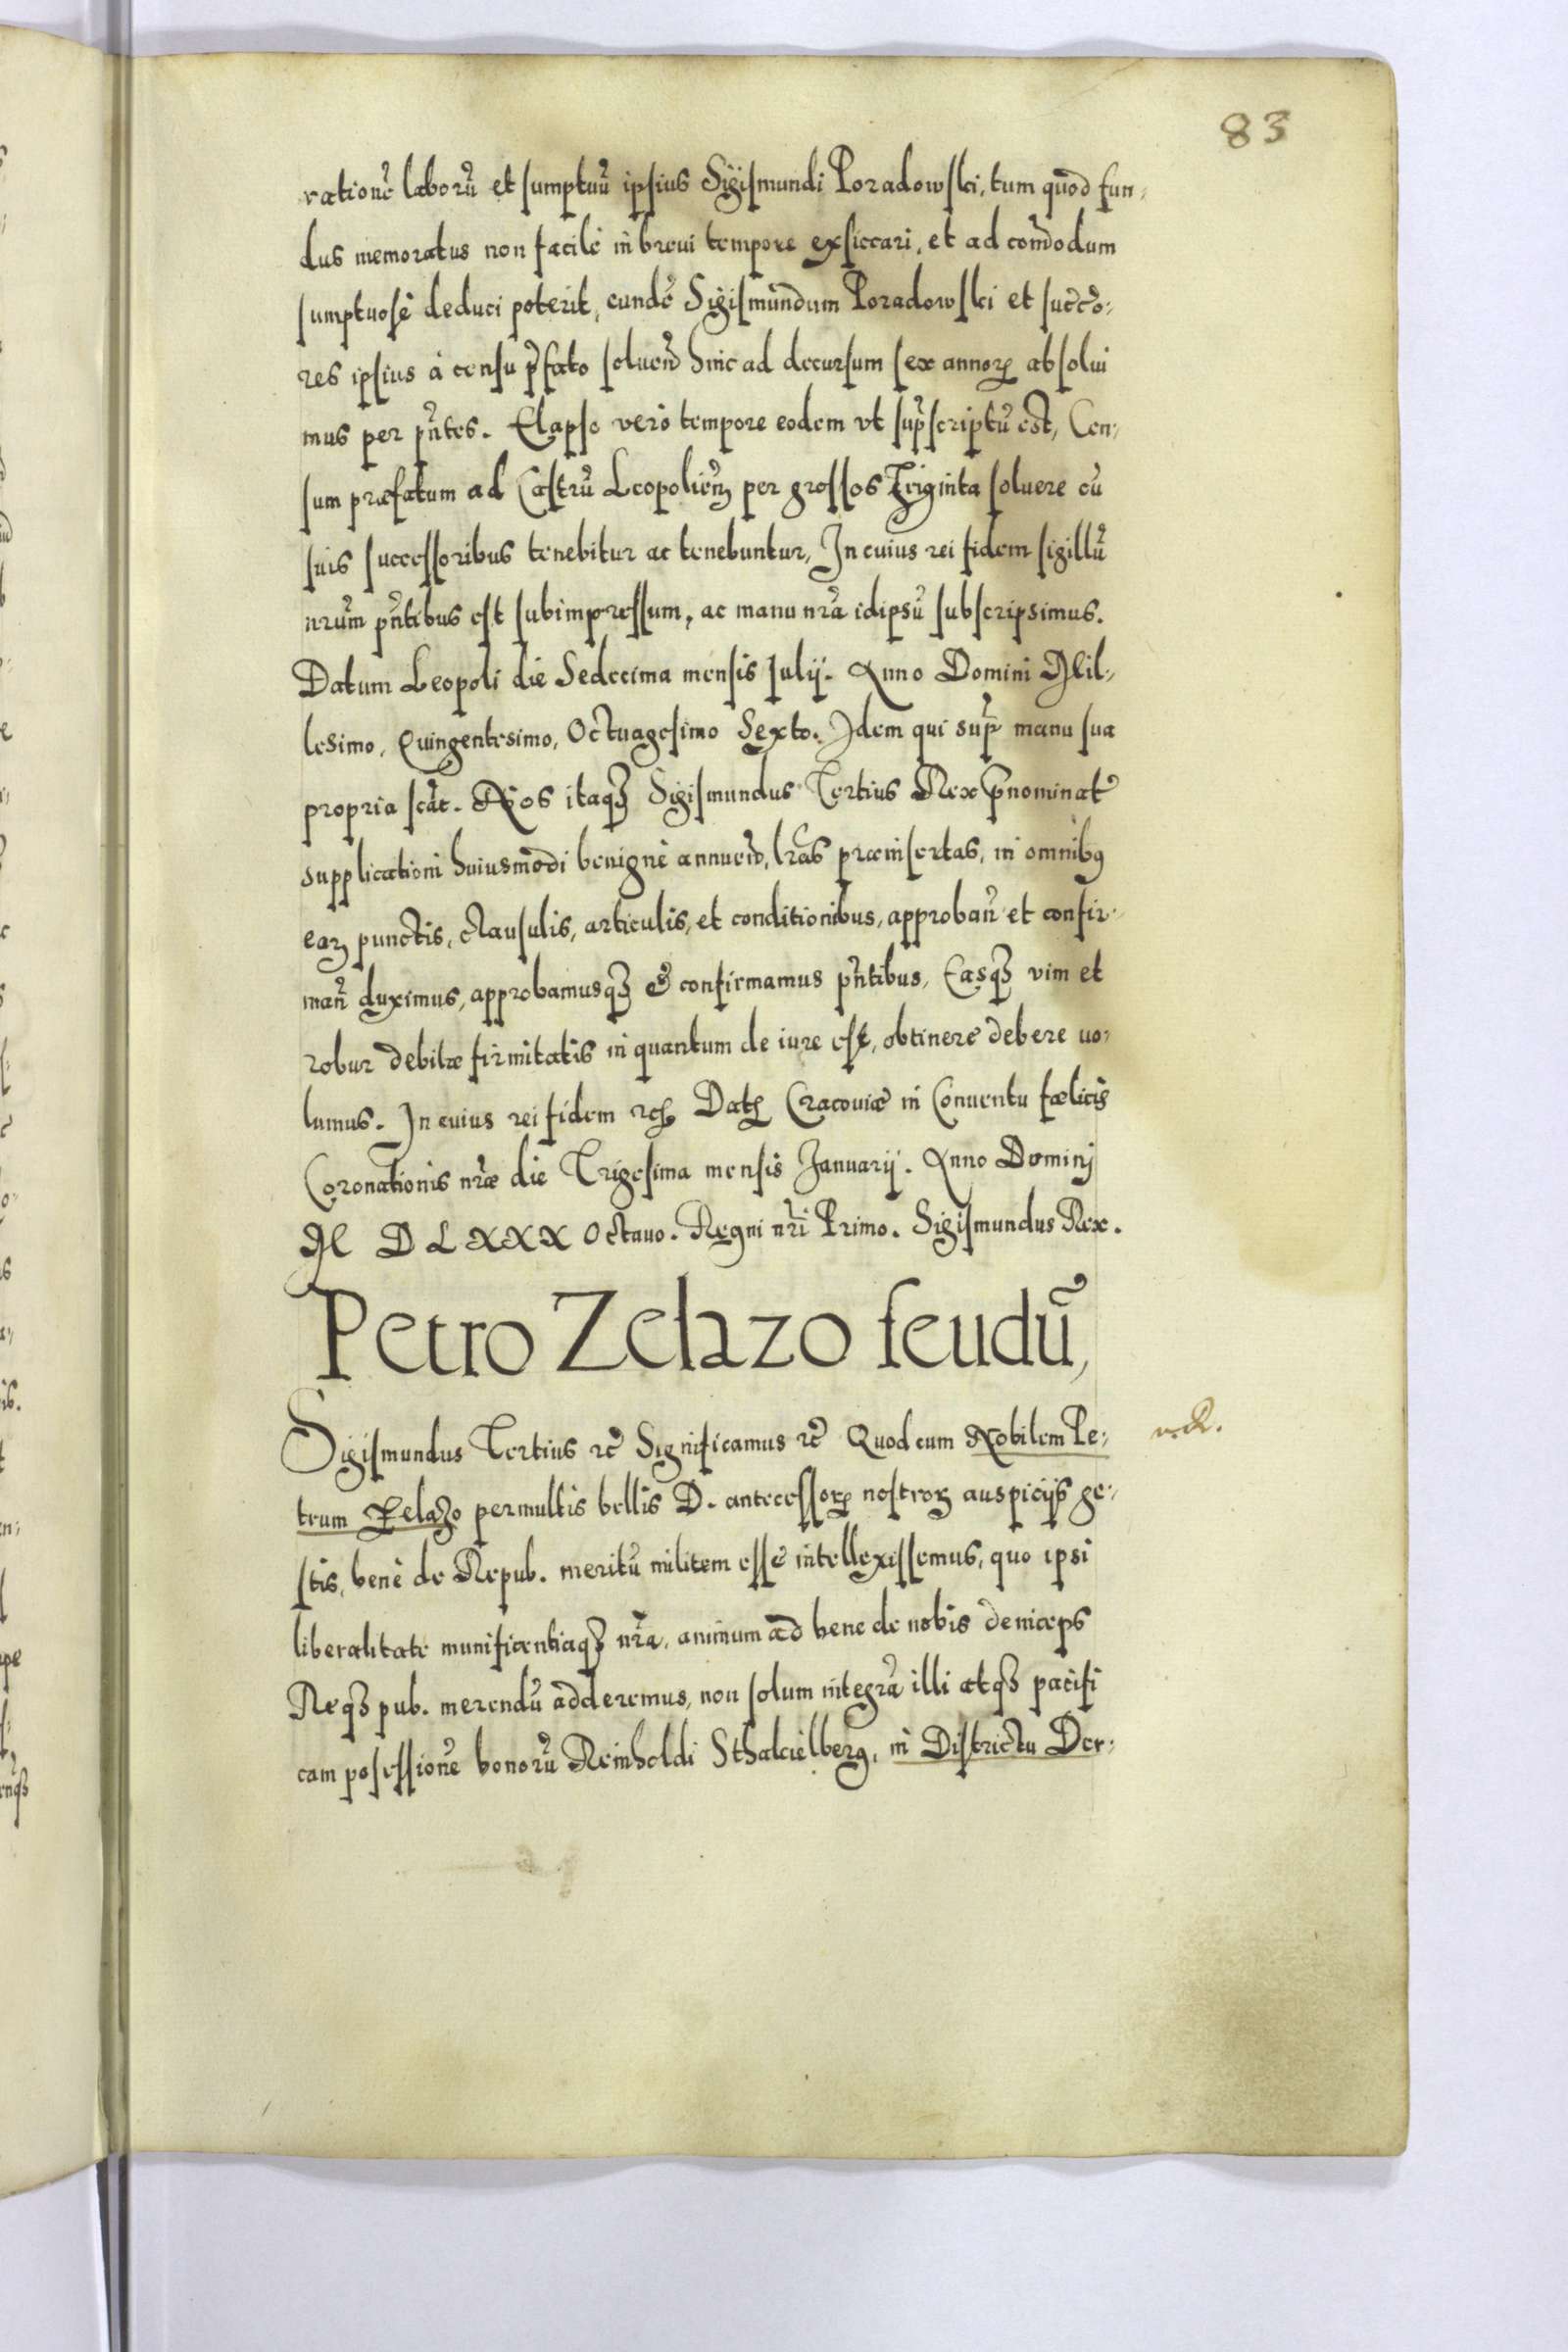 83
rationẽ laborũ et sumptuũ ipsius Sigismundi Poradowski, tum quod fun-
dus memoratus non facilè in breui tempore exsiccari, et ad com̃odum
sumptuosè deduci poterit, eundẽ Sigismundum Poradowski et succ̃o-
res ipsius à censu p̃fato soluen̄ hinc ad decursum sex annoꝝ absolui
mus per pñtes. Elapso verò tempore eodem vt sup̃scriptũ est, Cen-
sum præfatum ad Castrũ Leopolieñ per grossos Triginta soluere cũ
suis successoribus tenebitur ac tenebuntur, In cuius rei fidem sigillũ
nr̃um pñtibus est subimpressum, ac manu nr̃a idipsũ subscripsimus.
Datum Leopoli die Sedecima mensis Iulij. Anno Domini Mil-
lesimo, Quingentesimo, Octuagesimo Sexto. Idem qui sup̃ manu sua
propria sc̃at. Nos itaqꝫ Sigismundus Tertius Rex p̃nominatꝰ
supplicationi huiusmodi benignè annuen̄, lr̃as præinsertas, in omnibꝰ
eaꝝ punctis, clausulis, articulis, et conditionibus, approbañ et confir-
mañ duximus, approbamusqꝫ & confirmamus pñtibus, Easqꝫ vim et
robur debitæ firmitatis in quantum de iure est, obtinere debere uo-
lumus. In cuius rei fidem ꝛcꝫ Datꝫ Cracouiæ in Conuentu fœlicis
Coronationis nr̃æ die Trigesima mensis Januarij. Anno Dominj
M D L XXX Octauo. Regni nr̃i Primo. Sigismundus Rex.
Petro Zelazo feudũ,
Sigismundus Tertius ꝛc̃ Significamus ꝛc̃ Quod cum Nobilem Pe-
trum Zelazo permultis bellis D. antecessoꝝ nostroꝝ auspicijs ge-
stis, benè de Repub. meritũ militem esse intellexissemus, quo ipsi
liberalitate munificentiaqꝫ nr̃a, animum ad bene de nobis deinceps
Reqꝫ pub. merendũ adderemus, non solum integrã illi atqꝫ pacifi
cam posessionẽ bonorũ Reinholdi Sthakielberg, in Districtu Der-